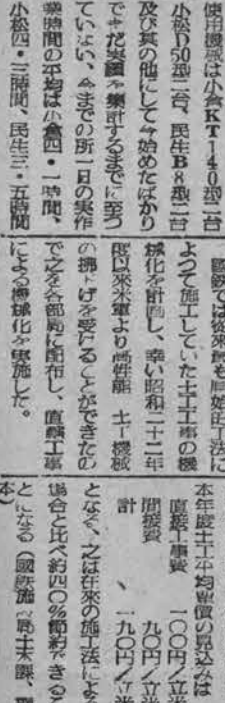 使用機械は小倉KT140型二台
小松D50型二台、民生B8型二台
及び其の他にして今始めたばかり
でまだ実績を集計するまでに至つ
ていない、今までの所一日の実作
業時間の平均は小倉四・一時間、
小松四・三時間、民生三・五時間
國鉄では從來最も原始的工法に
よつて施工していた土工工事の機
械化を計画し、幸い昭和二十二年
度以來米軍より高性能 土工機械
の拂下げを受けることができたの
で之を各部局に配布し、直轄工事
による機械化を実施した。
本年度土工平均單價の見込みは
直接工事費 一〇〇円/立米
間接費 九〇円/立米
計、一九〇円/立米
となる、之は在來の施工法による
場合と比べ約四〇%節約できるこ
とになる(國鉄施設局土木課、